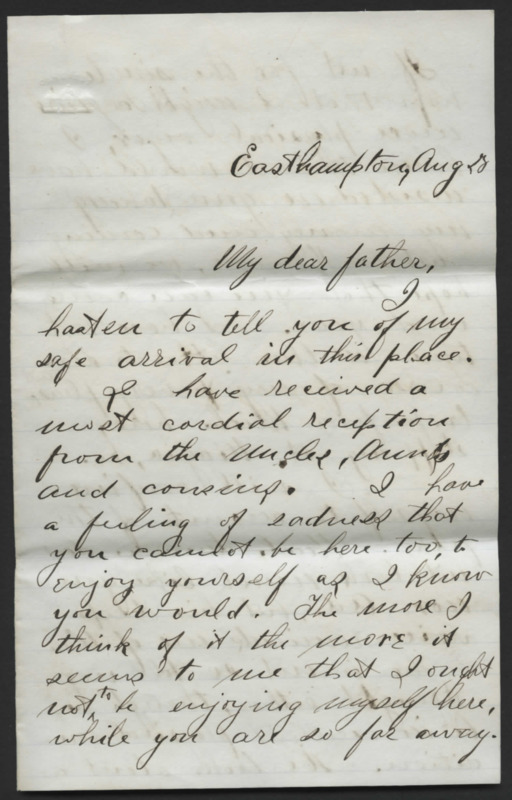 Easthampton, Aug 28
My dear father,
I
hasten to tell you of my
safe arrival in this place.
I have received a
most cordial reception
from the Uncles, Aunts
and cousins. I have
a feeling of sadness that
you cannot be here too, to
enjoy yourself as I know
you would. The more I
think of it the more it
seems to me that I ought
not to be enjoying myself here,
while you are so far away.